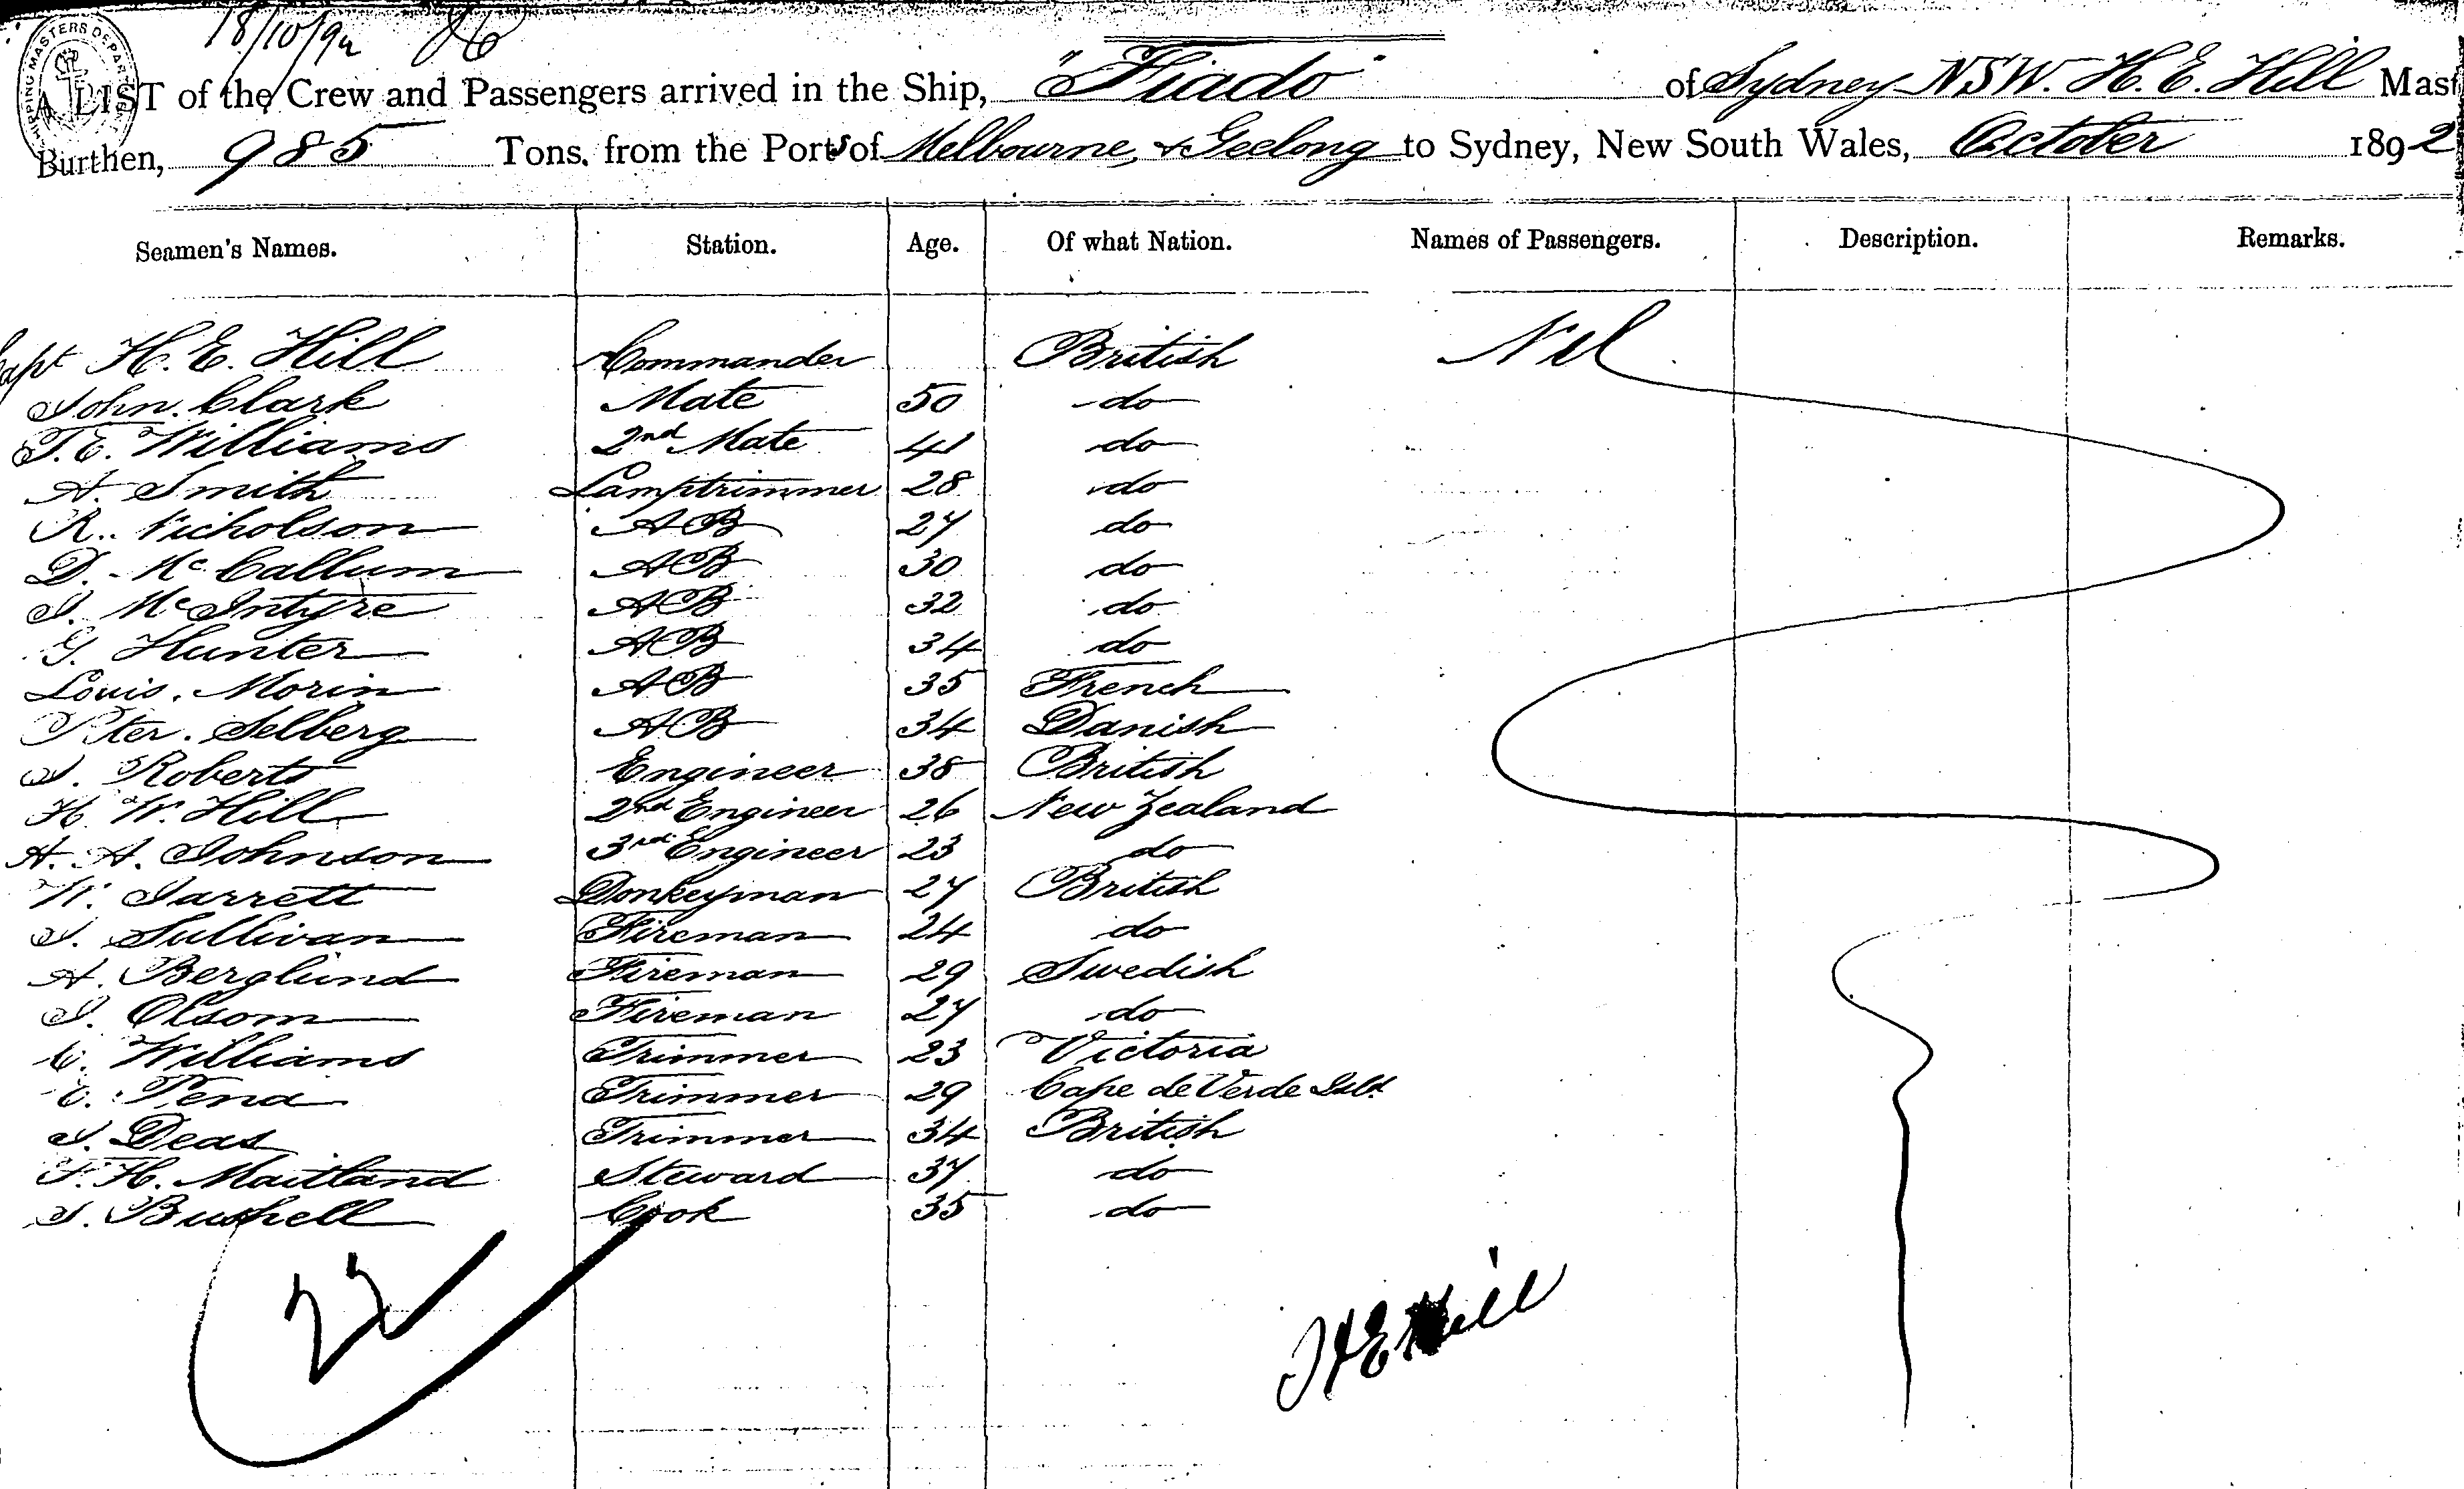 18/10/92 86
SHIPPING MASTERS DEPARTMENT
A LIST of the Crew and Passengers arrived in the Ship, "Fiado" of Sydney NSW. H. E. Hill Mast
Burthen, 985 Tons. from the Ports of Melbourne, & Geelong to Sydney, New South Wales, October 1892
Seamen's Names. Station. Age. Of what Nation. Names of Passengers. Description. Remarks.
Capt H. E. Hill Commander British Nil
John. Clark Mate 50 do
T. E. Williams 2nd Mate 41 do
A. Smith Lamptrimmer 28 do
R. Nicholson AB 27 do
D. McCallum AB 30 do
J. McIntyre AB 32 do
G. Hunter AB 34 do
Louis. Morin AB 35 French
Peter. Selberg AB 34 Danish
J. Roberts Engineer 38 British
H. W. Hill 2nd Engineer 26 New Zealand
A. A. Johnson 3rd Engineer 23 do
W. Jarrett Donkeyman 27 British
J. Sullivan Fireman 24 do
A. Berglund Fireman 29 Swedish
J. Olsom Fireman 27 do
C. Williams Trimmer 23 Victoria
C. Pena Trimmer 29 Cape de Verde Isld.
J. Deas Trimmer 34 British
F. H. Maitland Steward 37 do
J. Bushell Cook 35 do
22
H E Hill